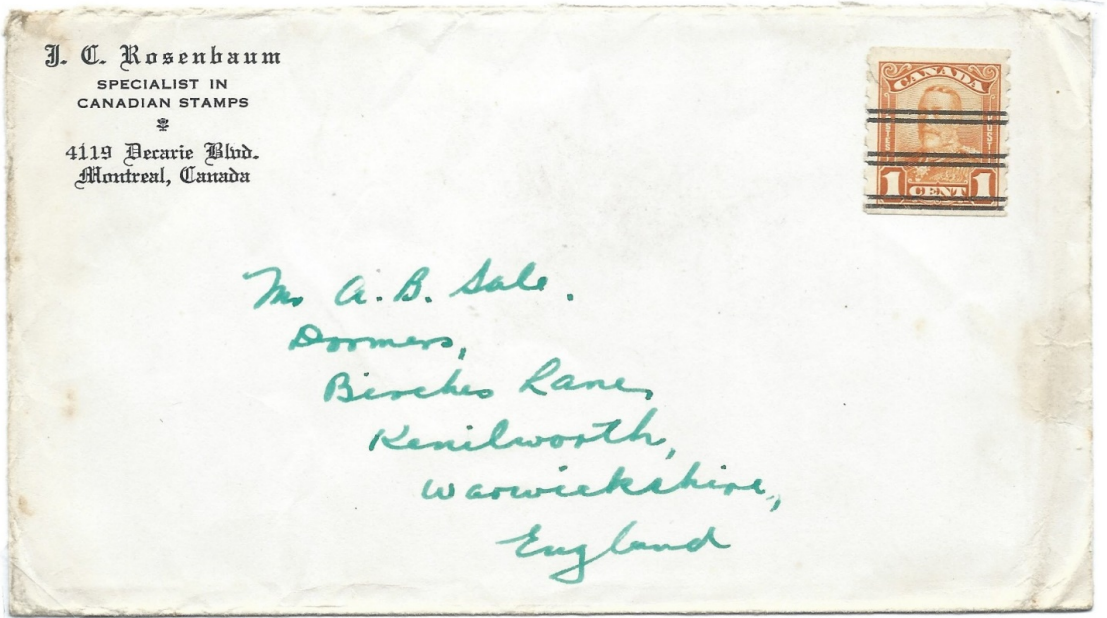 J. C. Rosenbaum
SPECIALIST IN
CANADIAN STAMPS
4119 Decarie Blvd.
Montreal, Canada
CANADA
1 CENT 1
Mr A. B. Sale.
Dormers,
Birches Lane,
Kenilworth,
Warwickshire,
England